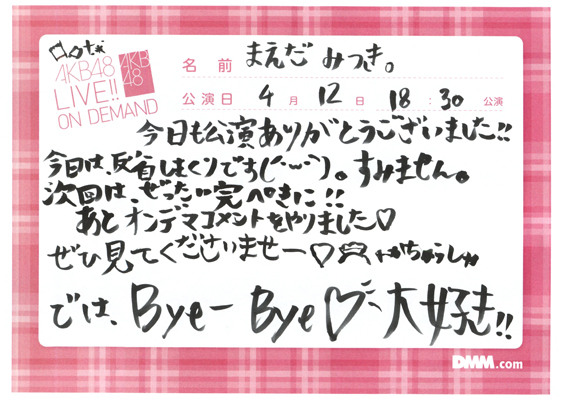 AKB48
LIVE!!
ON DEMAND
AKB
48
名前 まえだ みつき。
公演日 4月12日 18:30公演
今日も公演ありがとうございました!!
今日は、反省しまくりです(´・ω・`)。すみません。
次回は、ぜったい完ぺきに!!
あとオンデマコメントをやりました♡
ぜひ見てくださいませー♡
では、Bye-Bye♡大好き!!
DMM.com